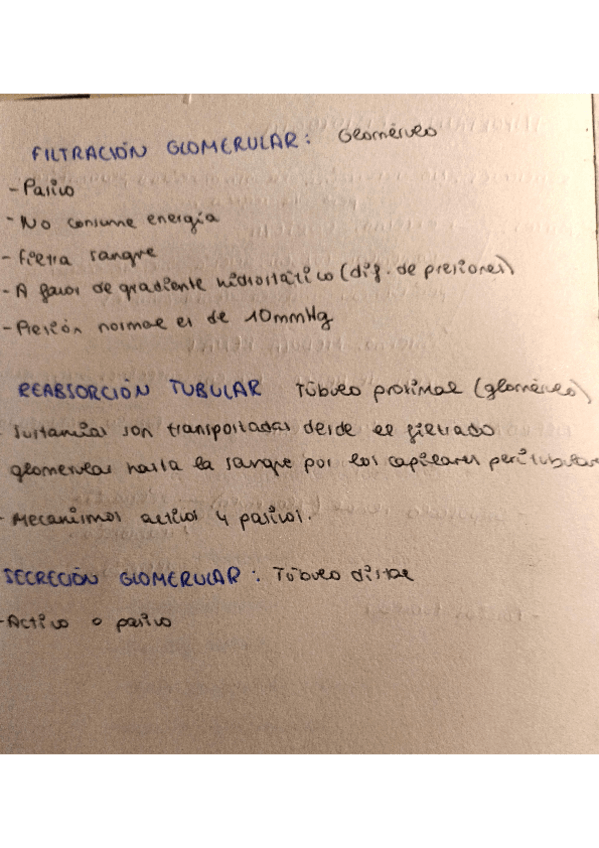 FILTRACIÓN GLOMERULAR: Glomérulo
- Pasivo
- No consume energía
- Filtra sangre
- A favor de gradiente hidrostático (dif. de presiones)
- Presión normal es de 10mmHg
REABSORCIÓN TUBULAR Túbulo proximal (glomérulo)
- Sustancias son transportadas desde el filtrado
glomerular hasta la sangre por los capilares peritubular
- Mecanismos activos y pasivos.
SECRECIÓN GLOMERULAR: Túbulo distal
- Activo o pasivo